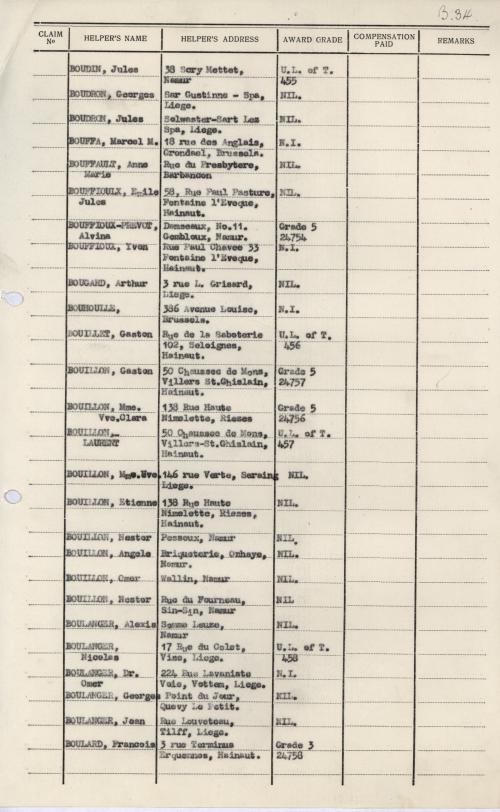 B.34
CLAIM No HELPER'S NAME HELPER'S ADDRESS AWARD GRADE COMPENSATION PAID REMARKS
BOUDIN, Jules 38 Sory Mettet, U.L. of T.
Namur 455
BOUDRON, Georges Sar Gustinne - Spa, NIL.
Liege.
BOUDRON, Jules Selwaster-Sart Lez NIL.
Spa, Liege.
BOUFFA, Marcel M. 18 rue des Anglais, N.I.
Crondael, Brussels.
BOUFFAULT, Anne Rue du Presbytere, NIL.
Marie Barbancon
BOUFFIOULX, Emile 58, Rue Paul Pasture, NIL.
Jules Fontaine l'Eveque,
Hainaut.
BOUFFIOUX-PREVOT, Damseaux, No.11. Grade 5
Alvina Gembloux, Namur. 24754
BOUFFIOUX, Yvon Rue Paul Chavee 33 N.I.
Fontaine l'Eveque,
Hainaut.
BOUGARD, Arthur 3 rue L. Grisard, NIL.
Liege.
BOUHOULLE, 386 Avenue Louise, N.I.
Brussels.
BOUILLET, Gaston Rue de la Saboterie U.L. of T.
102, Seloignes, 456
Hainaut.
BOUILLON, Gaston 50 Chaussee de Mons, Grade 5
Villers St.Ghislain, 24757
Hainaut.
BOUILLON, Mme. 138 Rue Haute Grade 5
Vve.Clara Nimelette, Riezes 24756
BOUILLON, 50 Chaussee de Mons, U.L. of T.
LAURENT Villers-St.Ghislain, 457
Hainaut.
BOUILLON, Mme.Vve. 146 rue Verte, Seraing NIL.
Liege.
BOUILLON, Etienne 138 Rue Haute NIL.
Nimelette, Riezes,
Hainaut.
BOUILLON, Nestor Pessoux, Namur NIL.
BOUILLON, Angele Briqueterie, Onhaye, NIL.
Namur.
BOUILLON, Omer Wellin, Namur NIL.
BOUILLON, Nestor Rue du Fourneau, NIL
Sin-Sin, Namur
BOULANGER, Alexis Somme Leuze, NIL.
Namur
BOULANGER, 17 Rue du Colet, U.L. of T.
Nicolas Vise, Liege. 458
BOULANGER, Dr. 224 Rue Lavaniste N.I.
Omer Voie, Vottem, Liege.
BOULANGER, Georges Point du Jour, NIL.
Quevy Le Petit.
BOULANGER, Jean Rue Louveteau, NIL.
Tilff, Liege.
BOULARD, Francois 3 rue Terminus Grade 3
Erquennes, Hainaut. 24758